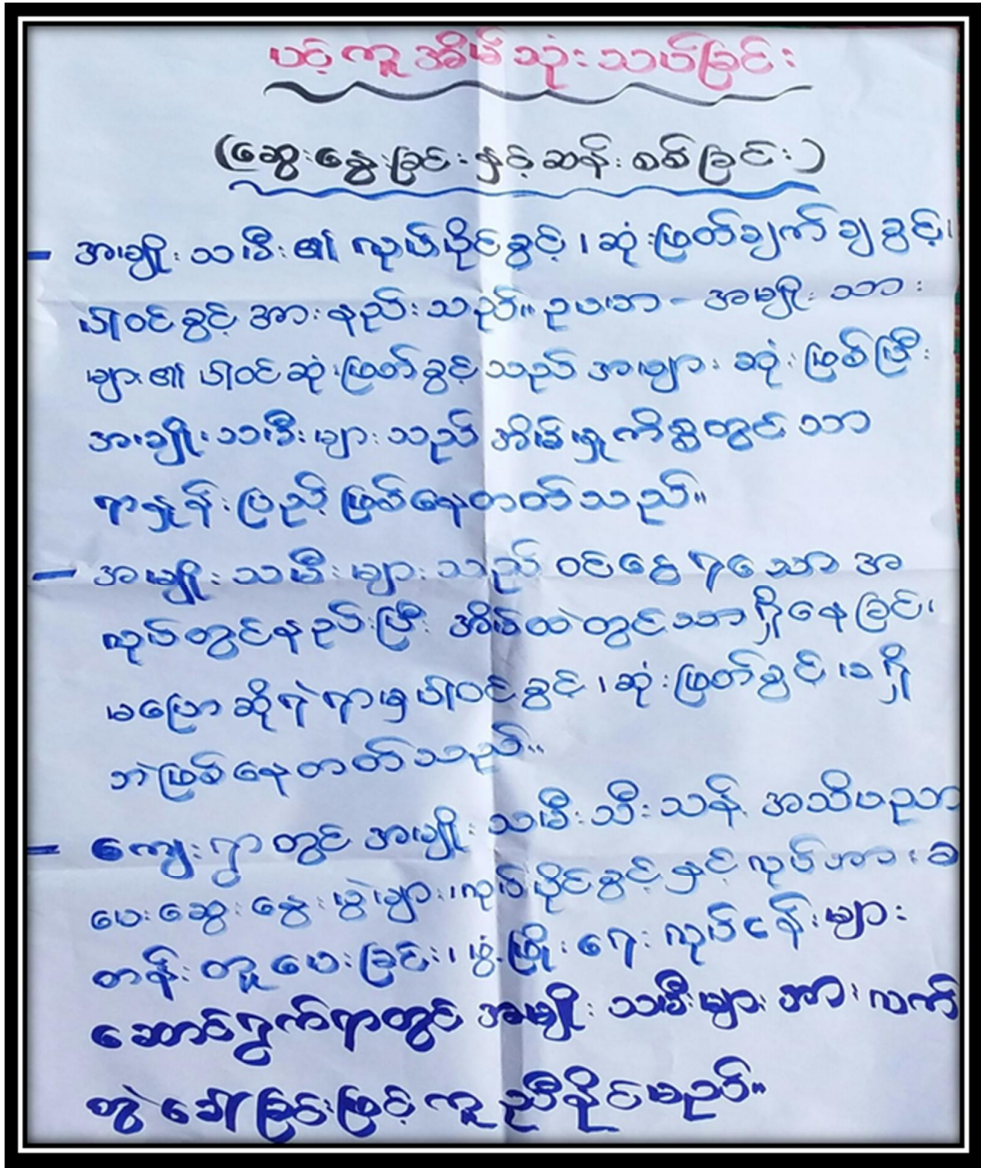 ပင့်ကူအိမ်သုံးသပ်ခြင်း
(ဆွေးနွေးခြင်းနှင့်ဆန်းစစ်ခြင်း)
- အမျိုးသမီး၏ လုပ်ပိုင်ခွင့်၊ ဆုံးဖြတ်ချက်ချခွင့်၊
ပါဝင်ခွင့် အားနည်းသည်။ ဥပမာ - အမျိုးသား
များ၏ ပါဝင်ဆုံးဖြတ်ခွင့်သည် အများဆုံးဖြစ်ပြီး
အမျိုးသမီးများသည် အိမ်မှုကိစ္စတွင်သာ
ရာနှုန်းပြည့်ဖြစ်နေတတ်သည်။
- အမျိုးသမီးများသည် ဝင်ငွေရသော အ
လုပ်တွင်နည်းပြီး အိမ်ထဲတွင်သာရှိနေခြင်း၊
မပြောဆိုရဲရာမှ ပါဝင်ခွင့်၊ ဆုံးဖြတ်ခွင့် မရှိ
ဘဲဖြစ်နေတတ်သည်။
- ကျေးရွာတွင် အမျိုးသမီးသီးသန့် အသိပညာ
ပေးဆွေးနွေးပွဲများ၊ လုပ်ပိုင်ခွင့်နှင့်လုပ်အားခ
တန်းတူပေးခြင်း၊ ဖွံ့ဖြိုးရေးလုပ်ငန်းများ
ဆောင်ရွက်ရာတွင် အမျိုးသမီးများအား လက်
တွဲခေါ်ခြင်းဖြင့် ကူညီနိုင်မည်။